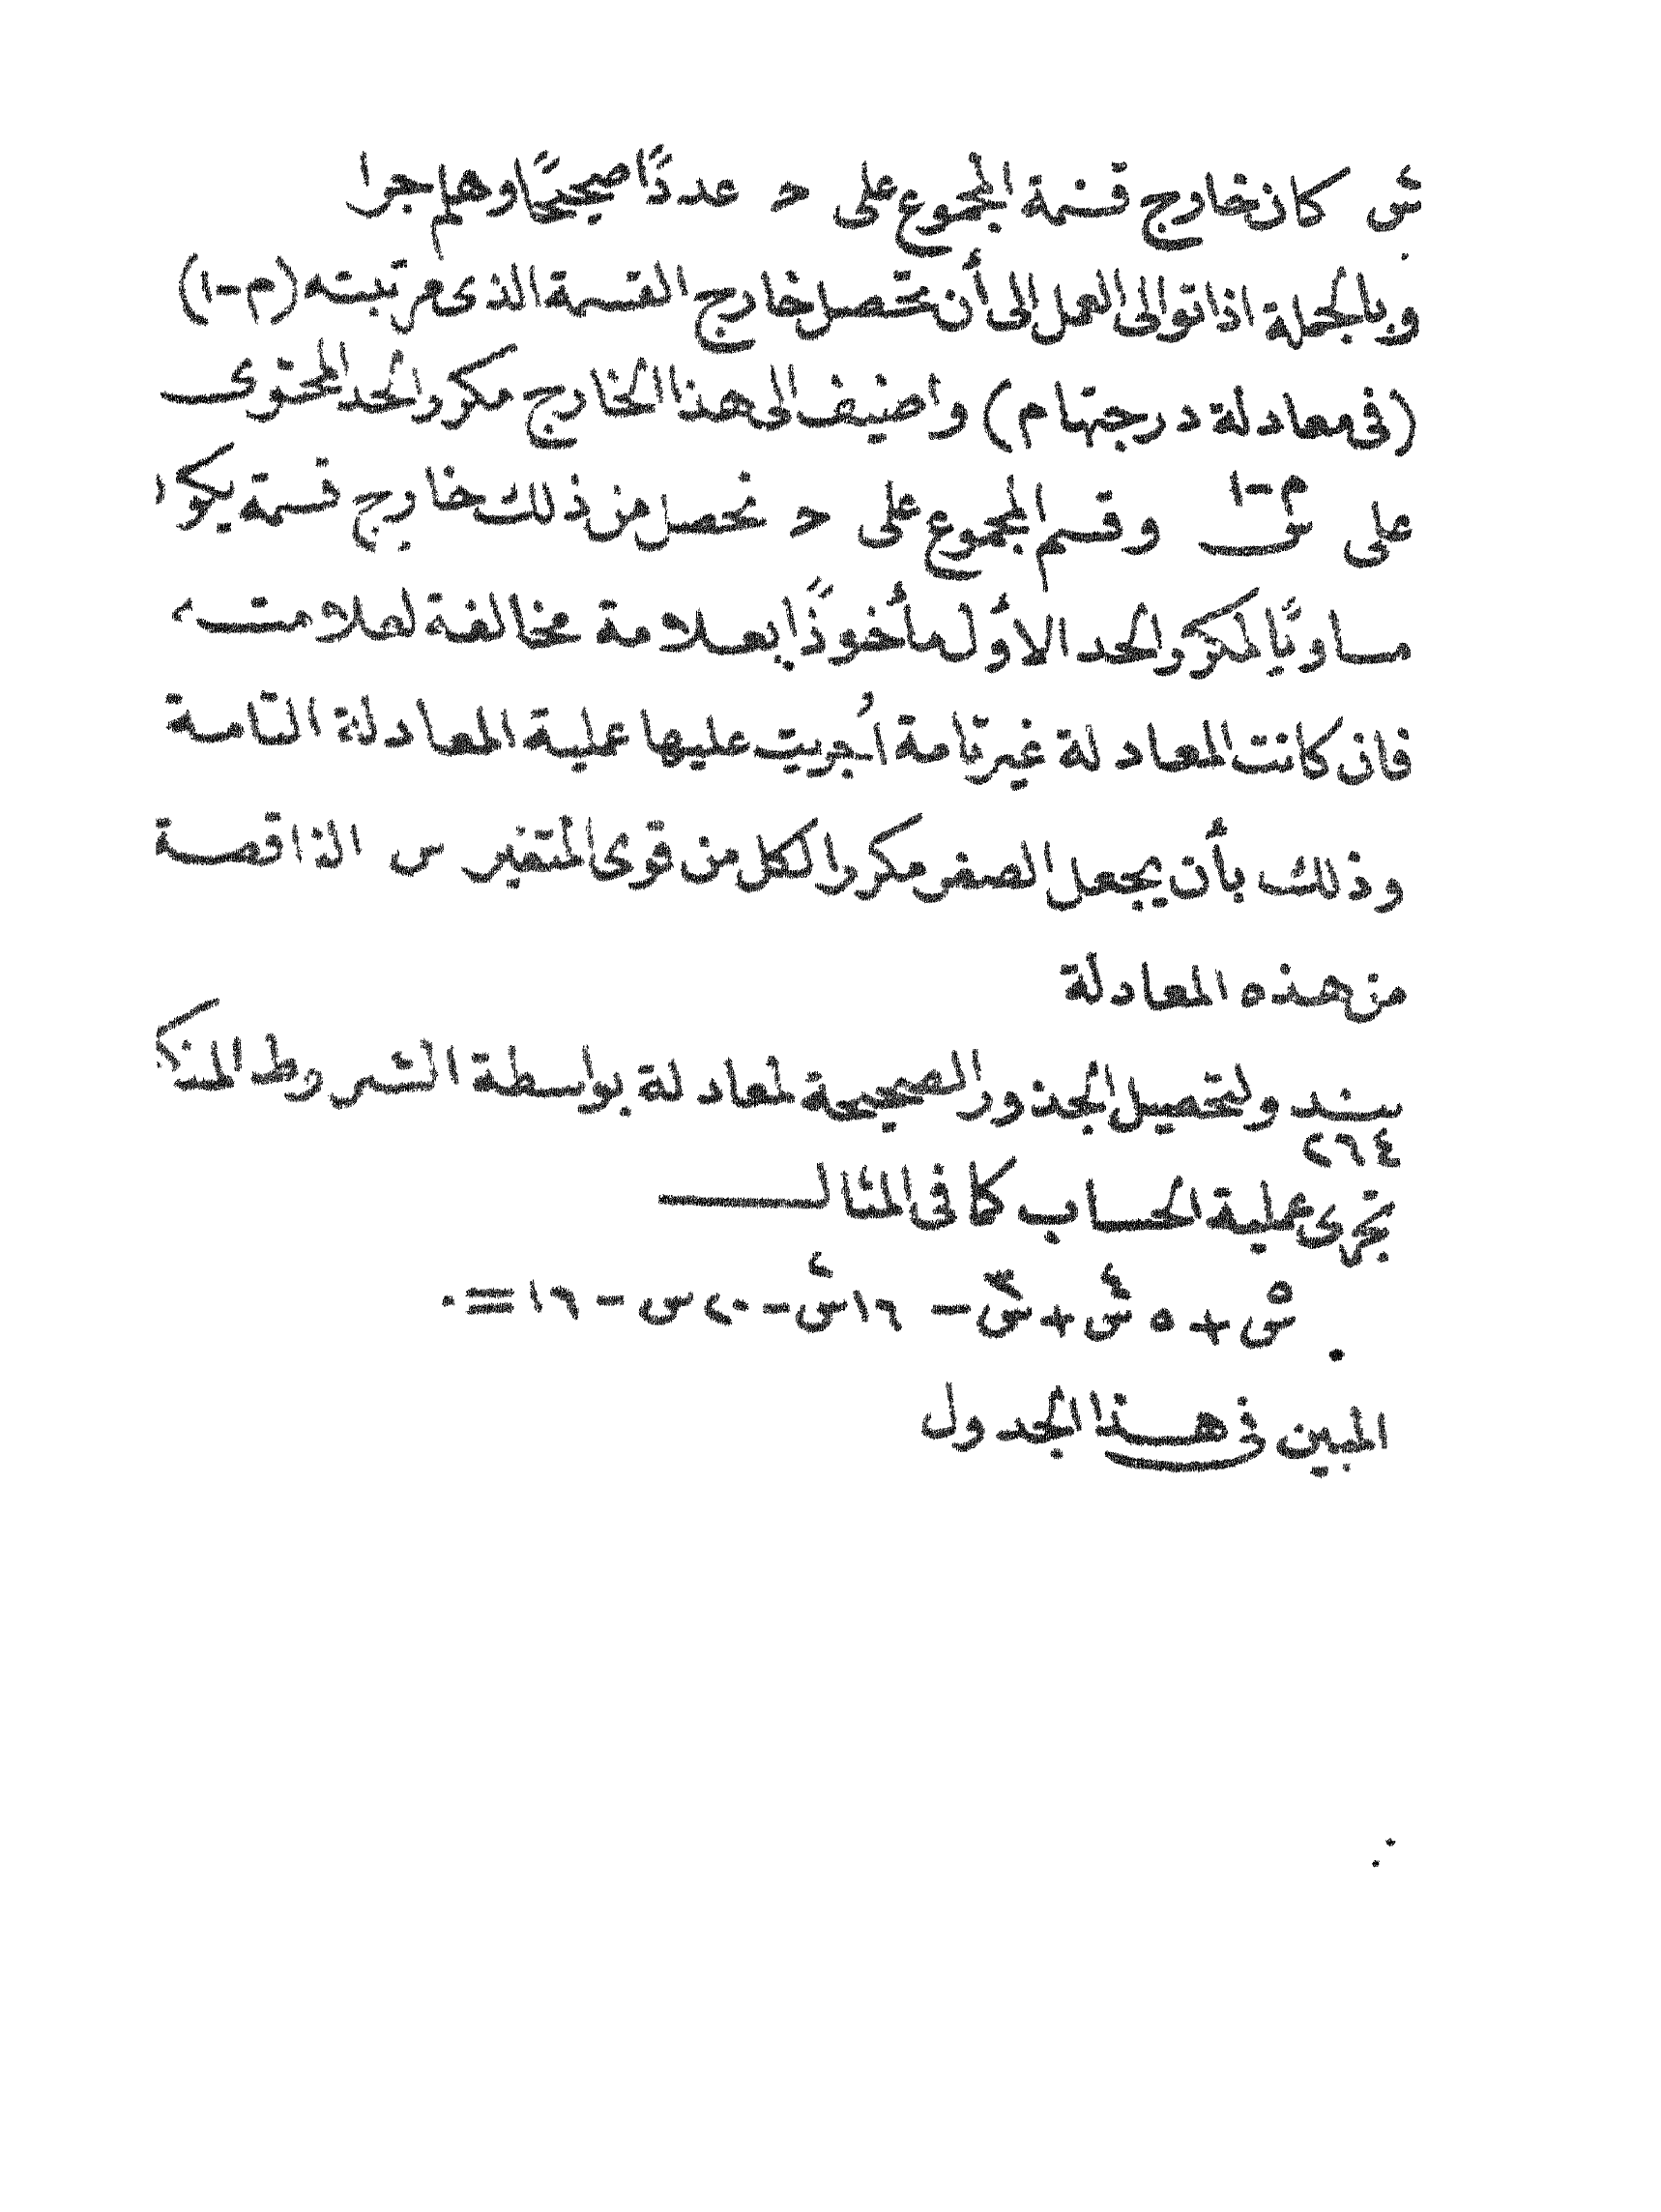 س٢ كان خارج قسمة المجموع على د عددًا صحيحًا وهلم جرا
وبالجملة اذا توالى العمل الى أن تحصل خارج القسمة الذى مرتبته (م-١)
(فى معادلة درجتها م) واضيف الى هذا الخارج مكرر الحد المحتوى
على س^م-١ وقسم المجموع على د تحصل من ذلك خارج قسمة يكو
مساويًا لمكرر الحد الأول مأخوذًا بعلامة مخالفة لعلامته
فان كانت المعادلة غير تامة أجريت عليها عملية المعادلة التامة
وذلك بأن يجعل الصفر مكررا لكل من قوى المتغير س الناقصة
من هذه المعادلة
بند ولتحصيل الجذور الصحيحة لمعادلة بواسطة الشروط المذك
٢٦٤
تجرى عملية الحساب كما فى المثال
س٥ + ٥ س٤ + س٣ - ١٦ س٢ - ٢٠ س - ١٦ = ٠
المبين فى هذا الجدول